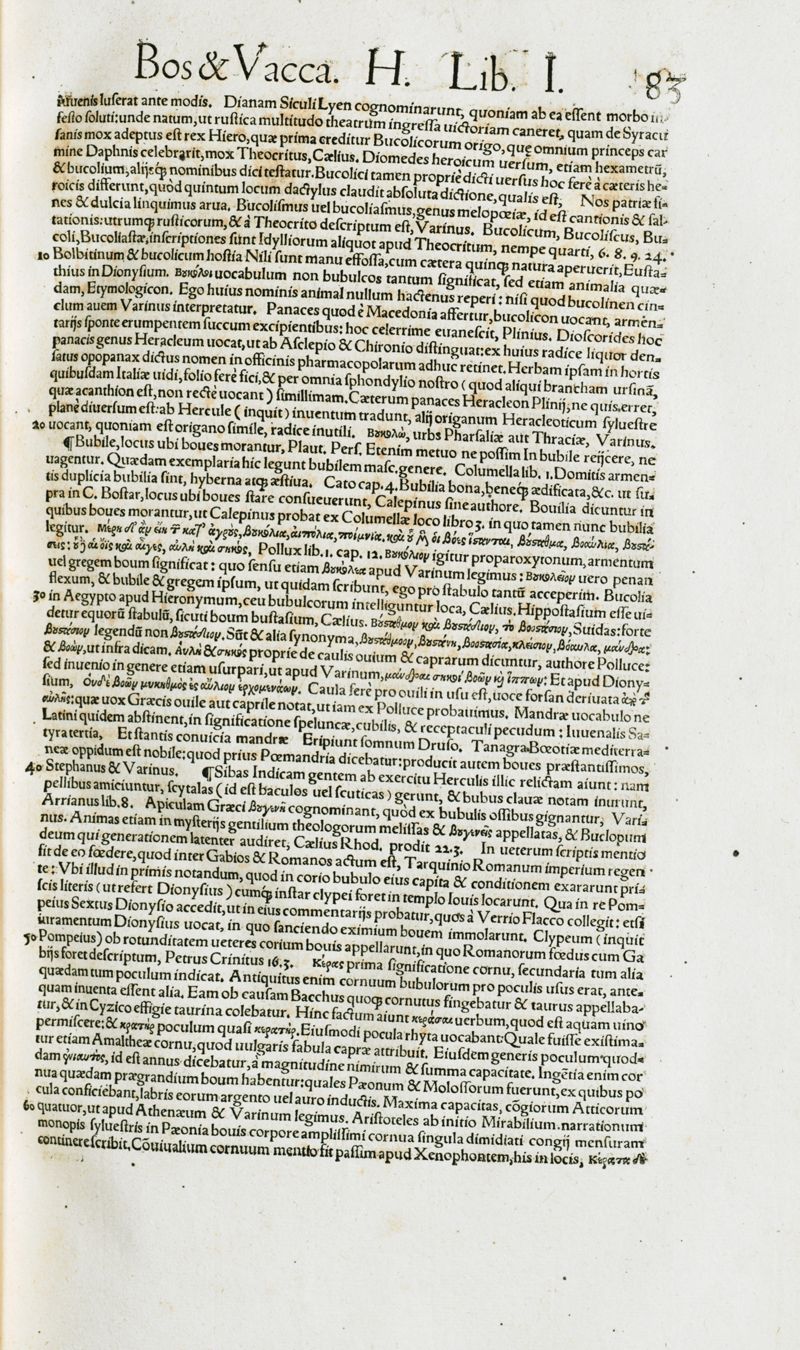 Bos & Vacca. H. Lib. I. 83
iuuenis luserat ante modis. Dianam Siculi Lyen cognominarunt, quoniam ab ea essent morbo
festo soluti: unde natum, ut rustica multitudo theatrum ingressa uictoriam caneret, quam de Syracu
sanis mox adeptus est rex Hiero, quæ prima creditur Bucolicorum origo, que omnium princeps car
mine Daphnis celebrarit, mox Theocritus, Cælius. Diomedes heroicum uersum, etiam hexametrũ,
& bucolium, alijsq́ nominibus dici testatur. Bucolici tamen proprie dicti uersus hoc ferè à cæteris he-
roicis differunt, quòd quintum locum dactylus claudit absoluta dictione, qualis est, Nos patriæ fi-
nes & dulcia linquimus arua. Bucolismus uel bucoliasmus, genus melopœiæ, id est cantionis & sal-
tationis: utrumq; rusticorum, & à Theocrito descriptum est, Varinus. Bucolicum, Bucoliscus, Bu-
coli, Bucoliastæ, inscriptiones sunt Idylliorum aliquot apud Theocritum, nempe quarti, 6. 8. 9. 24.
10 Bolbitinum & bucolicum hostia Nili sunt manu effossa, cum cætera quinq; natura aperuerit, Eusta-
thius in Dionysium. Βουκόλοι uocabulum non bubulcos tantum significat, sed etiam animalia quæ-
dam, Etymologicon. Ego huius nominis animal nullum hactenus reperi: nisi quod bucolinen cin-
clum auem Varinus interpretatur. Panaces quod è Macedonia affertur, bucolicon uocant, armen-
tarijs sponte erumpentem succum excipientibus: hoc celerrime euanescit, Plinius. Dioscorides hoc
panacis genus Heracleum uocat, ut ab Asclepio & Chironio distinguat: ex huius radice liquor den-
satus opopanax dictus nomen in officinis pharmacopolarum adhuc retinet. Herbam ipsam in hortis
quibusdam Italiæ uidi, folio ferè fici, & per omnia sphondylio nostro (quod aliqui brancham ursinã,
quæ acanthion est, non recte uocant) simillimam. Cæterum panaces Heracleon Plinij, ne quis erret,
planè diuersum est: ab Hercule (inquit) inuentum tradunt, alij origanum Heracleoticum syluestre
20 uocant, quoniam est origano simile, radice inutili. Βουκολὼ, urbs Pharsaliæ aut Thraciæ, Varinus.
¶ Bubile, locus ubi boues morantur, Plaut. Pers. Etenim metuo ne possim In bubile reijcere, ne
uagentur. Quædam exemplaria hic legunt bubilem masc. genere. Columella lib. 1. Domitis armen-
tis duplicia bubilia sint, hyberna atq; æstiua. Cato cap. 4. Bubilia bona, beneq́ ædificata, &c. ut su-
pra in C. Bostar, locus ubi boues stare consueuerunt, Calepinus sine authore. Bouilia dicuntur in
quibus boues morantur, ut Calepinus probat ex Columellæ loco libro 3. in quo tamen nunc bubilia
legitur.
Pollux lib. 1. cap. 12. Βουκόλιον igitur proparoxytonum, armentum
uel gregem boum significat: quo sensu etiam βουκολία apud Varinum legimus: Βουκολεῖον uero penan
flexum, & bubile & gregem ipsum, ut quidam scribunt, ego pro stabulo tantũ acceperim. Bucolia
30 in Aegypto apud Hieronymum, ceu bubulcorum intelliguntur loca, Cælius. Hippostasium esse ui-
detur equorũ stabulũ, sicuti boum bustasium, Cælius. Suidas: forte
legendũ non Sũt & alia synonyma,
& ut infra dicam. Αὐλὴ & σηκὸς proprie de caulis ouium & caprarum dicuntur, authore Polluce:
sed inuenio in genere etiam usurpari, ut apud Varinum, Et apud Diony-
sium, Caula fere pro ouili in usu est, uoce forsan deriuata
quæ uox Græcis ouile aut caprile notat, ut iam ex Polluce probauimus. Mandræ uocabulo ne
Latini quidem abstinent, in significatione speluncæ, cubilis, & receptaculi pecudum: Iuuenalis Sa-
tyra tertia, Et stantis conuicia mandræ Eripiunt somnum Druso. Tanagra Bœotiæ mediterra-
neæ oppidum est nobile: quod prius Pœmandria dicebatur: producit autem boues præstantissimos,
40 Stephanus & Varinus. ¶ Sibas Indicam gentem ab exercitu Herculis illic relictam aiunt: nam
pellibus amiciuntur, scytalas (id est baculos uel scuticas) gerunt, & bubus clauæ notam inurunt,
Arrianus lib. 8. Apiculam Græci βουγενῆ cognominant, quod ex bubulis ossibus gignantur, Vari-
nus. Animas etiam in mysterijs gentilium theologorum melissas & βουγενεῖς appellatas, & Buclopum
deum qui generationem latenter audiret, Cælius Rhod. prodit 22.3. In ueterum scriptis mentio
fit de eo fœdere, quod inter Gabios & Romanos actum est, Tarquinio Romanum imperium regen
te: Vbi illud in primis notandum, quod in corio bubulo eius capita & conditionem exararunt pri-
scis literis (ut refert Dionysius) cumq́ instar clypei foret in templo Iouis locarunt. Qua in re Pom-
peius Sextus Dionysio accedit, ut in eius commentarijs probatur, quos à Verrio Flacco collegit: etsi
iuramentum Dionysius uocat, in quo sanciendo eximium bouem immolarunt. Clypeum (inquit
50 Pompeius) ob rotunditatem ueteres corium bouis appellarunt, in quo Romanorum fœdus cum Ga
bijs foret descriptum, Petrus Crinitus 16.3. Κέρας prima significatione cornu, secundaria tum alia
quædam tum poculum indicat. Antiquitus enim cornuum bubulorum pro poculis usus erat, ante-
quam inuenta essent alia. Eam ob causam Bacchus quoq; cornutus fingebatur & taurus appellaba-
tur, & in Cyzico effigie taurina colebatur. Hinc factum aiunt κεράσαι uerbum, quod est aquam uino
permiscere: & κρατὴρ poculum quasi κερατήρ. Eiusmodi pocula rhyta uocabant: Quale fuisse existima-
tur etiam Amaltheæ cornu, quod uulgaris fabula capræ attribuit. Eiusdem generis poculum quod-
dam ἐνιαυτὸς, id est annus dicebatur, à magnitudine nimirum & summa capacitate. Ingẽtia enim cor
nua quædam prægrandium boum habentur: quales Pæonum & Molossorum fuerunt, ex quibus po
cula conficiebant, labris eorum argento uel auro inductis. Maxima capacitas, cõgiorum Atticorum
60 quatuor, ut apud Athenæum & Varinum legimus. Aristoteles ab initio Mirabilium narrationum
monopis syluestris in Pæonia bouis corpore amplissimi cornua singula dimidiati congij mensuram
continere scribit. Cõuiualium cornuum mentio fit passim apud Xenophontem, his in locis, Κέρατα